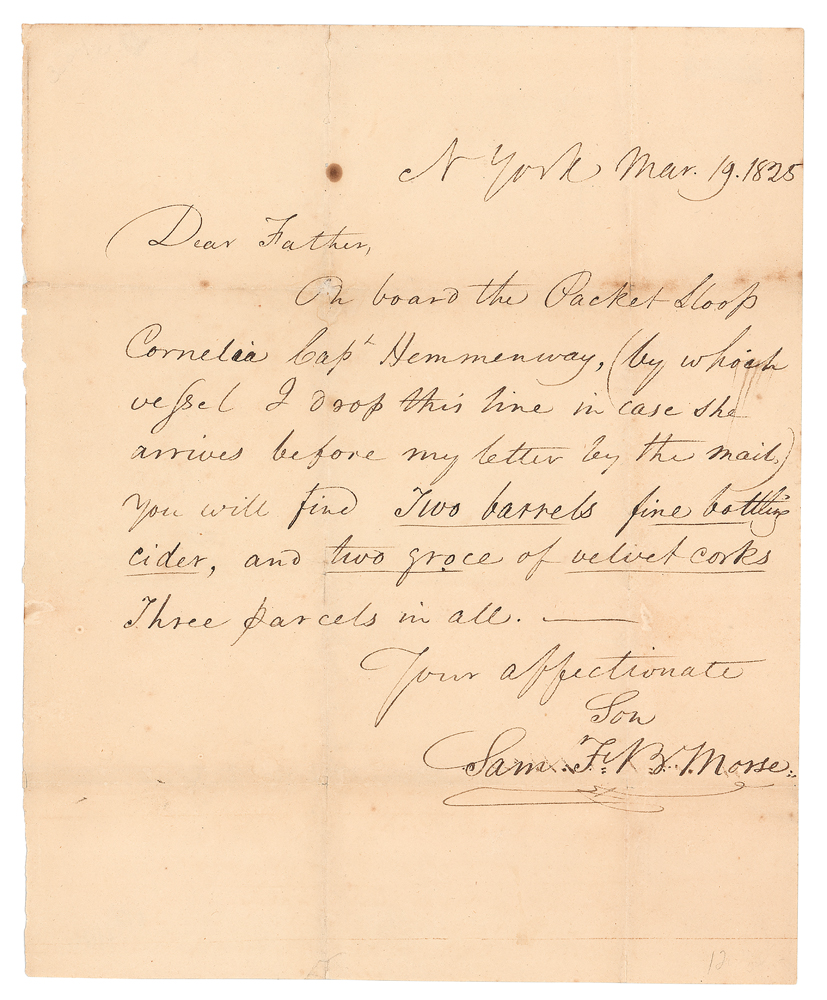 N York Mar. 19. 1825
Dear Father,
On board the Packet Sloop
Cornelia Capt Hemmenway, (by which
vessel I drop this line in case she
arrives before my letter by the mail,)
You will find Two barrels fine bottling
cider, and two groce of velvet corks
Three parcels in all. —
Your affectionate
Son
Sam. F. B. Morse.
12